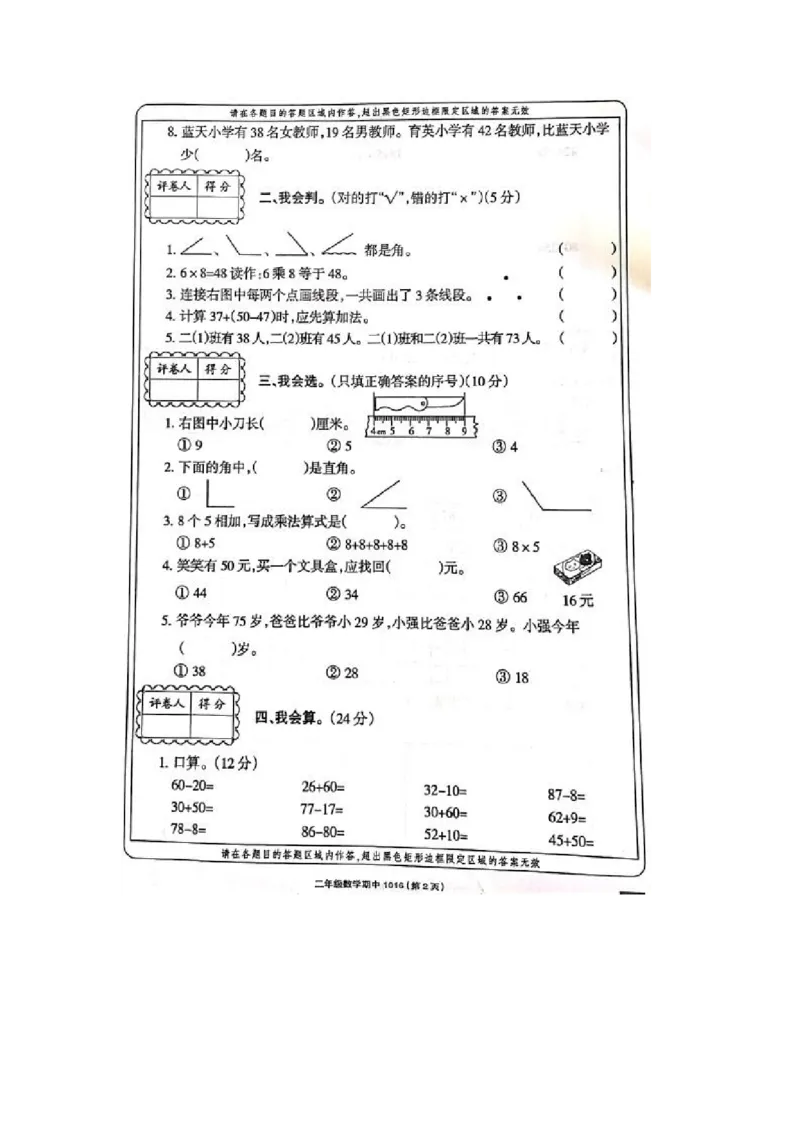 请在各题目的答题区域内作答,超出黑色矩形边框限定区域的答案无效
8. 蓝天小学有 38 名女教师,19 名男教师。育英小学有 42 名教师,比蓝天小学
少( )名。
评卷人 得 分
二、我会判。(对的打“√”,错的打“×”)(5 分)
1. 、 、 、 都是角。 ( )
2. 6×8=48 读作:6 乘 8 等于 48。 ( )
3. 连接右图中每两个点画线段,一共画出了 3 条线段。 ( )
4. 计算 37+(50-47)时,应先算加法。 ( )
5. 二(1)班有 38 人,二(2)班有 45 人。二(1)班和二(2)班一共有 73 人。 ( )
评卷人 得 分
三、我会选。(只填正确答案的序号)(10 分)
1. 右图中小刀长( )厘米。 4cm 5 6 7 8 9
① 9 ② 5 ③ 4
2. 下面的角中,( )是直角。
① ② ③
3. 8 个 5 相加,写成乘法算式是( )。
① 8+5 ② 8+8+8+8+8 ③ 8×5
4. 笑笑有 50 元,买一个文具盒,应找回( )元。
① 44 ② 34 ③ 66 16 元
5. 爷爷今年 75 岁,爸爸比爷爷小 29 岁,小强比爸爸小 28 岁。小强今年
( )岁。
① 38 ② 28 ③ 18
评卷人 得 分
四、我会算。(24 分)
1. 口算。(12 分)
60-20= 26+60= 32-10= 87-8=
30+50= 77-17= 30+60= 62+9=
78-8= 86-80= 52+10= 45+50=
请在各题目的答题区域内作答,超出黑色矩形边框限定区域的答案无效
二年级数学期中 1016 (第 2 页)